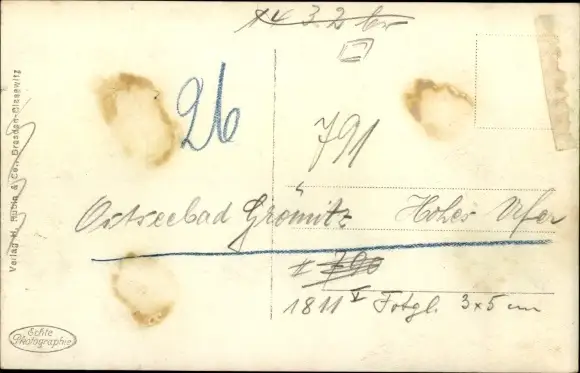 26
791
Ostseebad Grömitz Hohes Ufer
# 790
1811 V Fotgl. 3x5 cm
Verlag H. Rubin & Co., Dresden-Blasewitz
Echte
Photographie